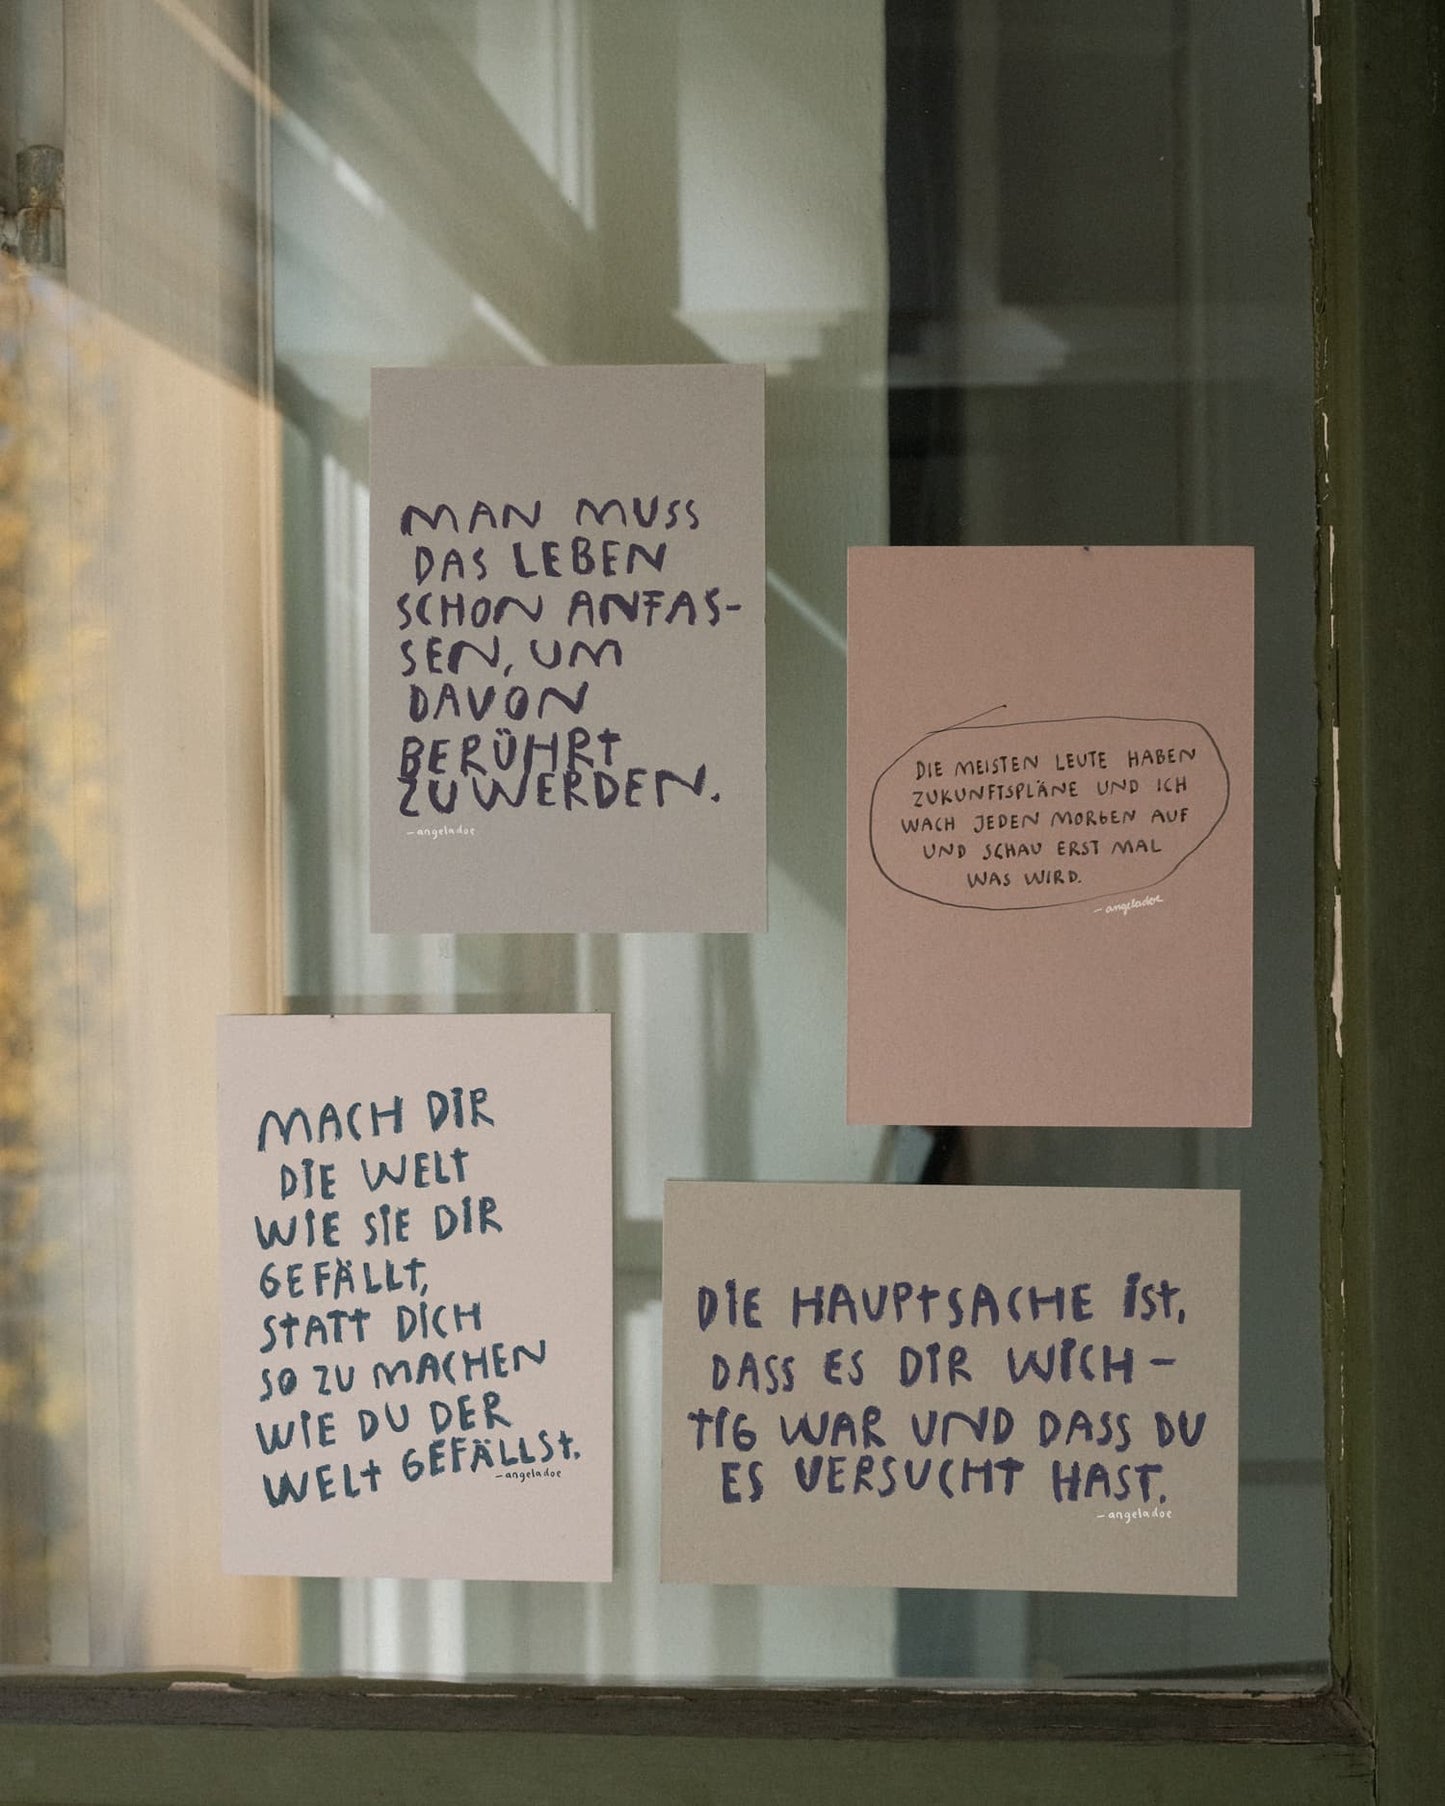 MAN MUSS
DAS LEBEN
SCHON ANFAS-
SEN, UM
DAVON
BERÜHRT
ZU WERDEN.
– angeladoe
DIE MEISTEN LEUTE HABEN
ZUKUNFTSPLÄNE UND ICH
WACH JEDEN MORGEN AUF
UND SCHAU ERST MAL
WAS WIRD.
– angeladoe
MACH DIR
DIE WELT
WIE SIE DIR
GEFÄLLT,
STATT DICH
SO ZU MACHEN
WIE DU DER
WELT GEFÄLLST.
– angeladoe
DIE HAUPTSACHE IST,
DASS ES DIR WICH-
TIG WAR UND DASS DU
ES VERSUCHT HAST.
– angeladoe